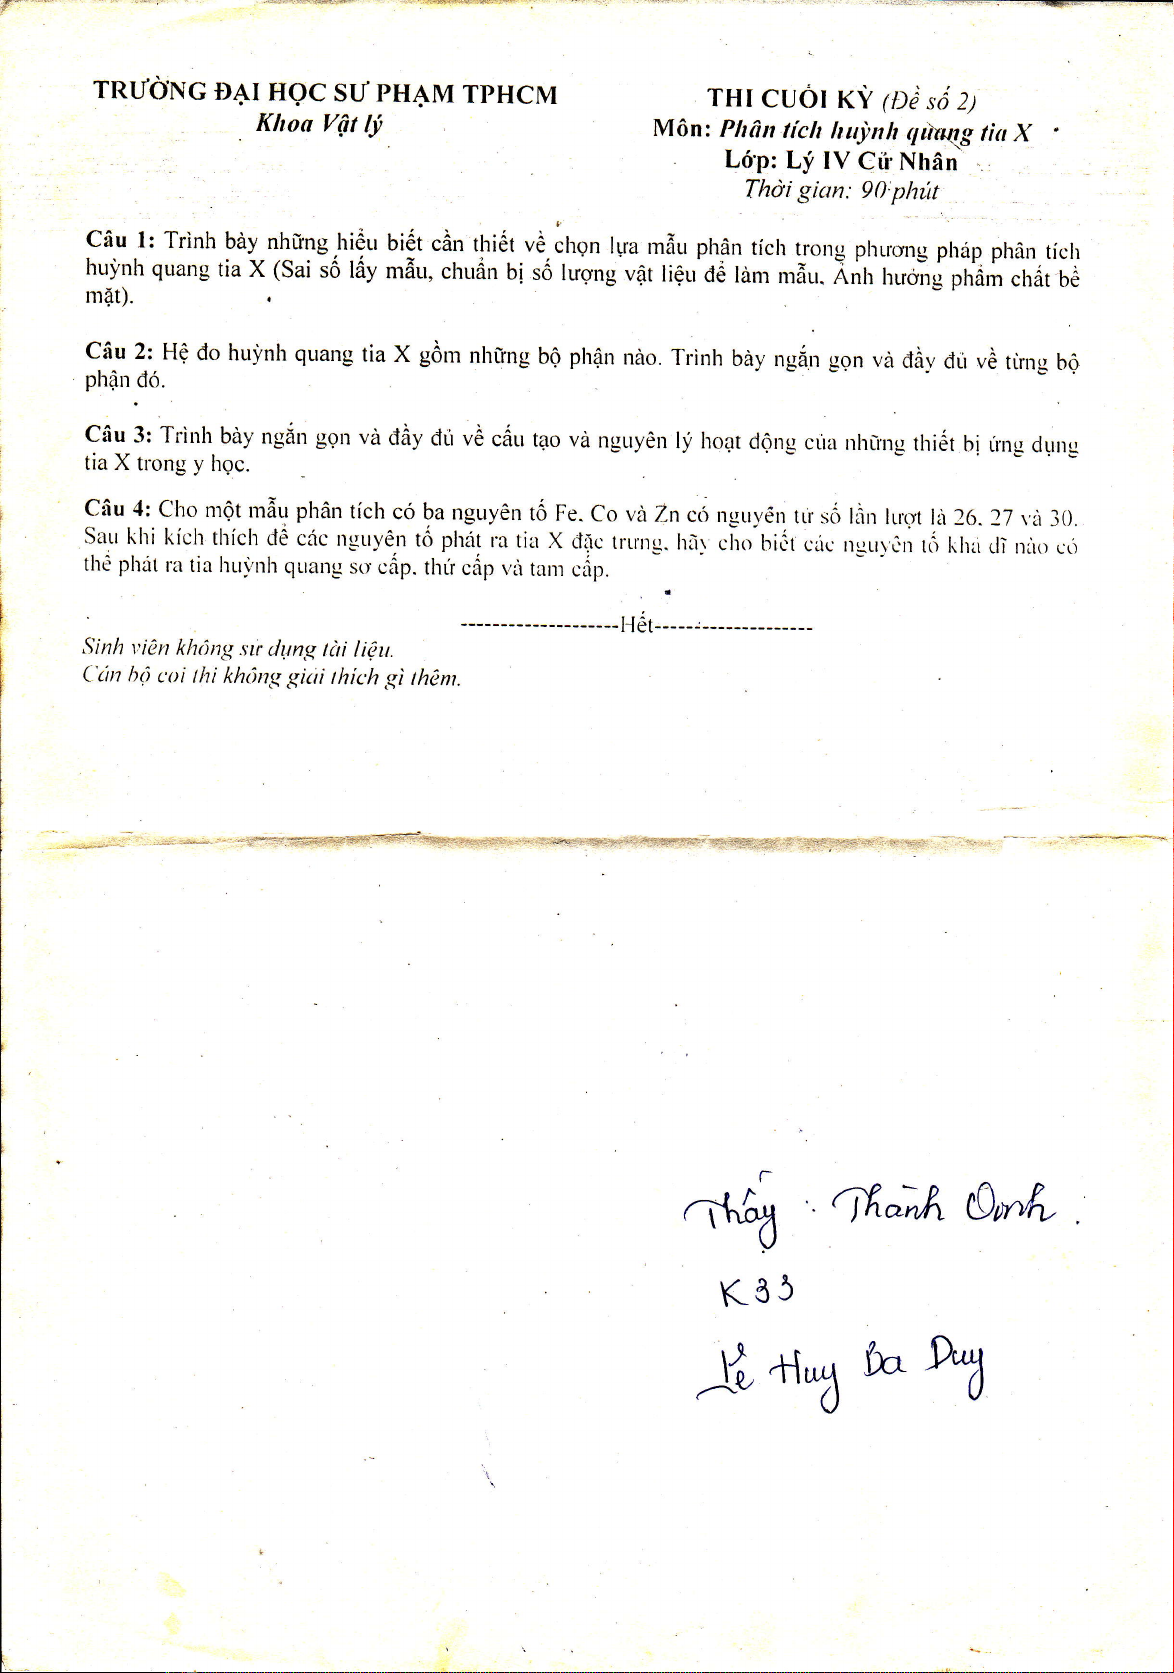 TRƯỜNG ĐẠI HỌC SƯ PHẠM TPHCM
Khoa Vật lý
THI CUỐI KỲ (Đề số 2)
Môn: Phân tích huỳnh quang tia X
Lớp: Lý IV Cử Nhân
Thời gian: 90 phút
Câu 1: Trình bày những hiểu biết cần thiết về chọn lựa mẫu phân tích trong phương pháp phân tích
huỳnh quang tia X (Sai số lấy mẫu, chuẩn bị số lượng vật liệu để làm mẫu. Ảnh hưởng phẩm chất bề
mặt).
Câu 2: Hệ đo huỳnh quang tia X gồm những bộ phận nào. Trình bày ngắn gọn và đầy đủ về từng bộ
phận đó.
Câu 3: Trình bày ngắn gọn và đầy đủ về cấu tạo và nguyên lý hoạt động của những thiết bị ứng dụng
tia X trong y học.
Câu 4: Cho một mẫu phân tích có ba nguyên tố Fe, Co và Zn có nguyên tử số lần lượt là 26, 27 và 30.
Sau khi kích thích để các nguyên tố phát ra tia X đặc trưng, hãy cho biết các nguyên tố khả dĩ nào có
thể phát ra tia huỳnh quang sơ cấp, thứ cấp và tam cấp.
--------------------Hết--------------------
Sinh viên không sử dụng tài liệu.
Cán bộ coi thi không giải thích gì thêm.
Thầy : Thành
K33
Lê Huy Ba Duy